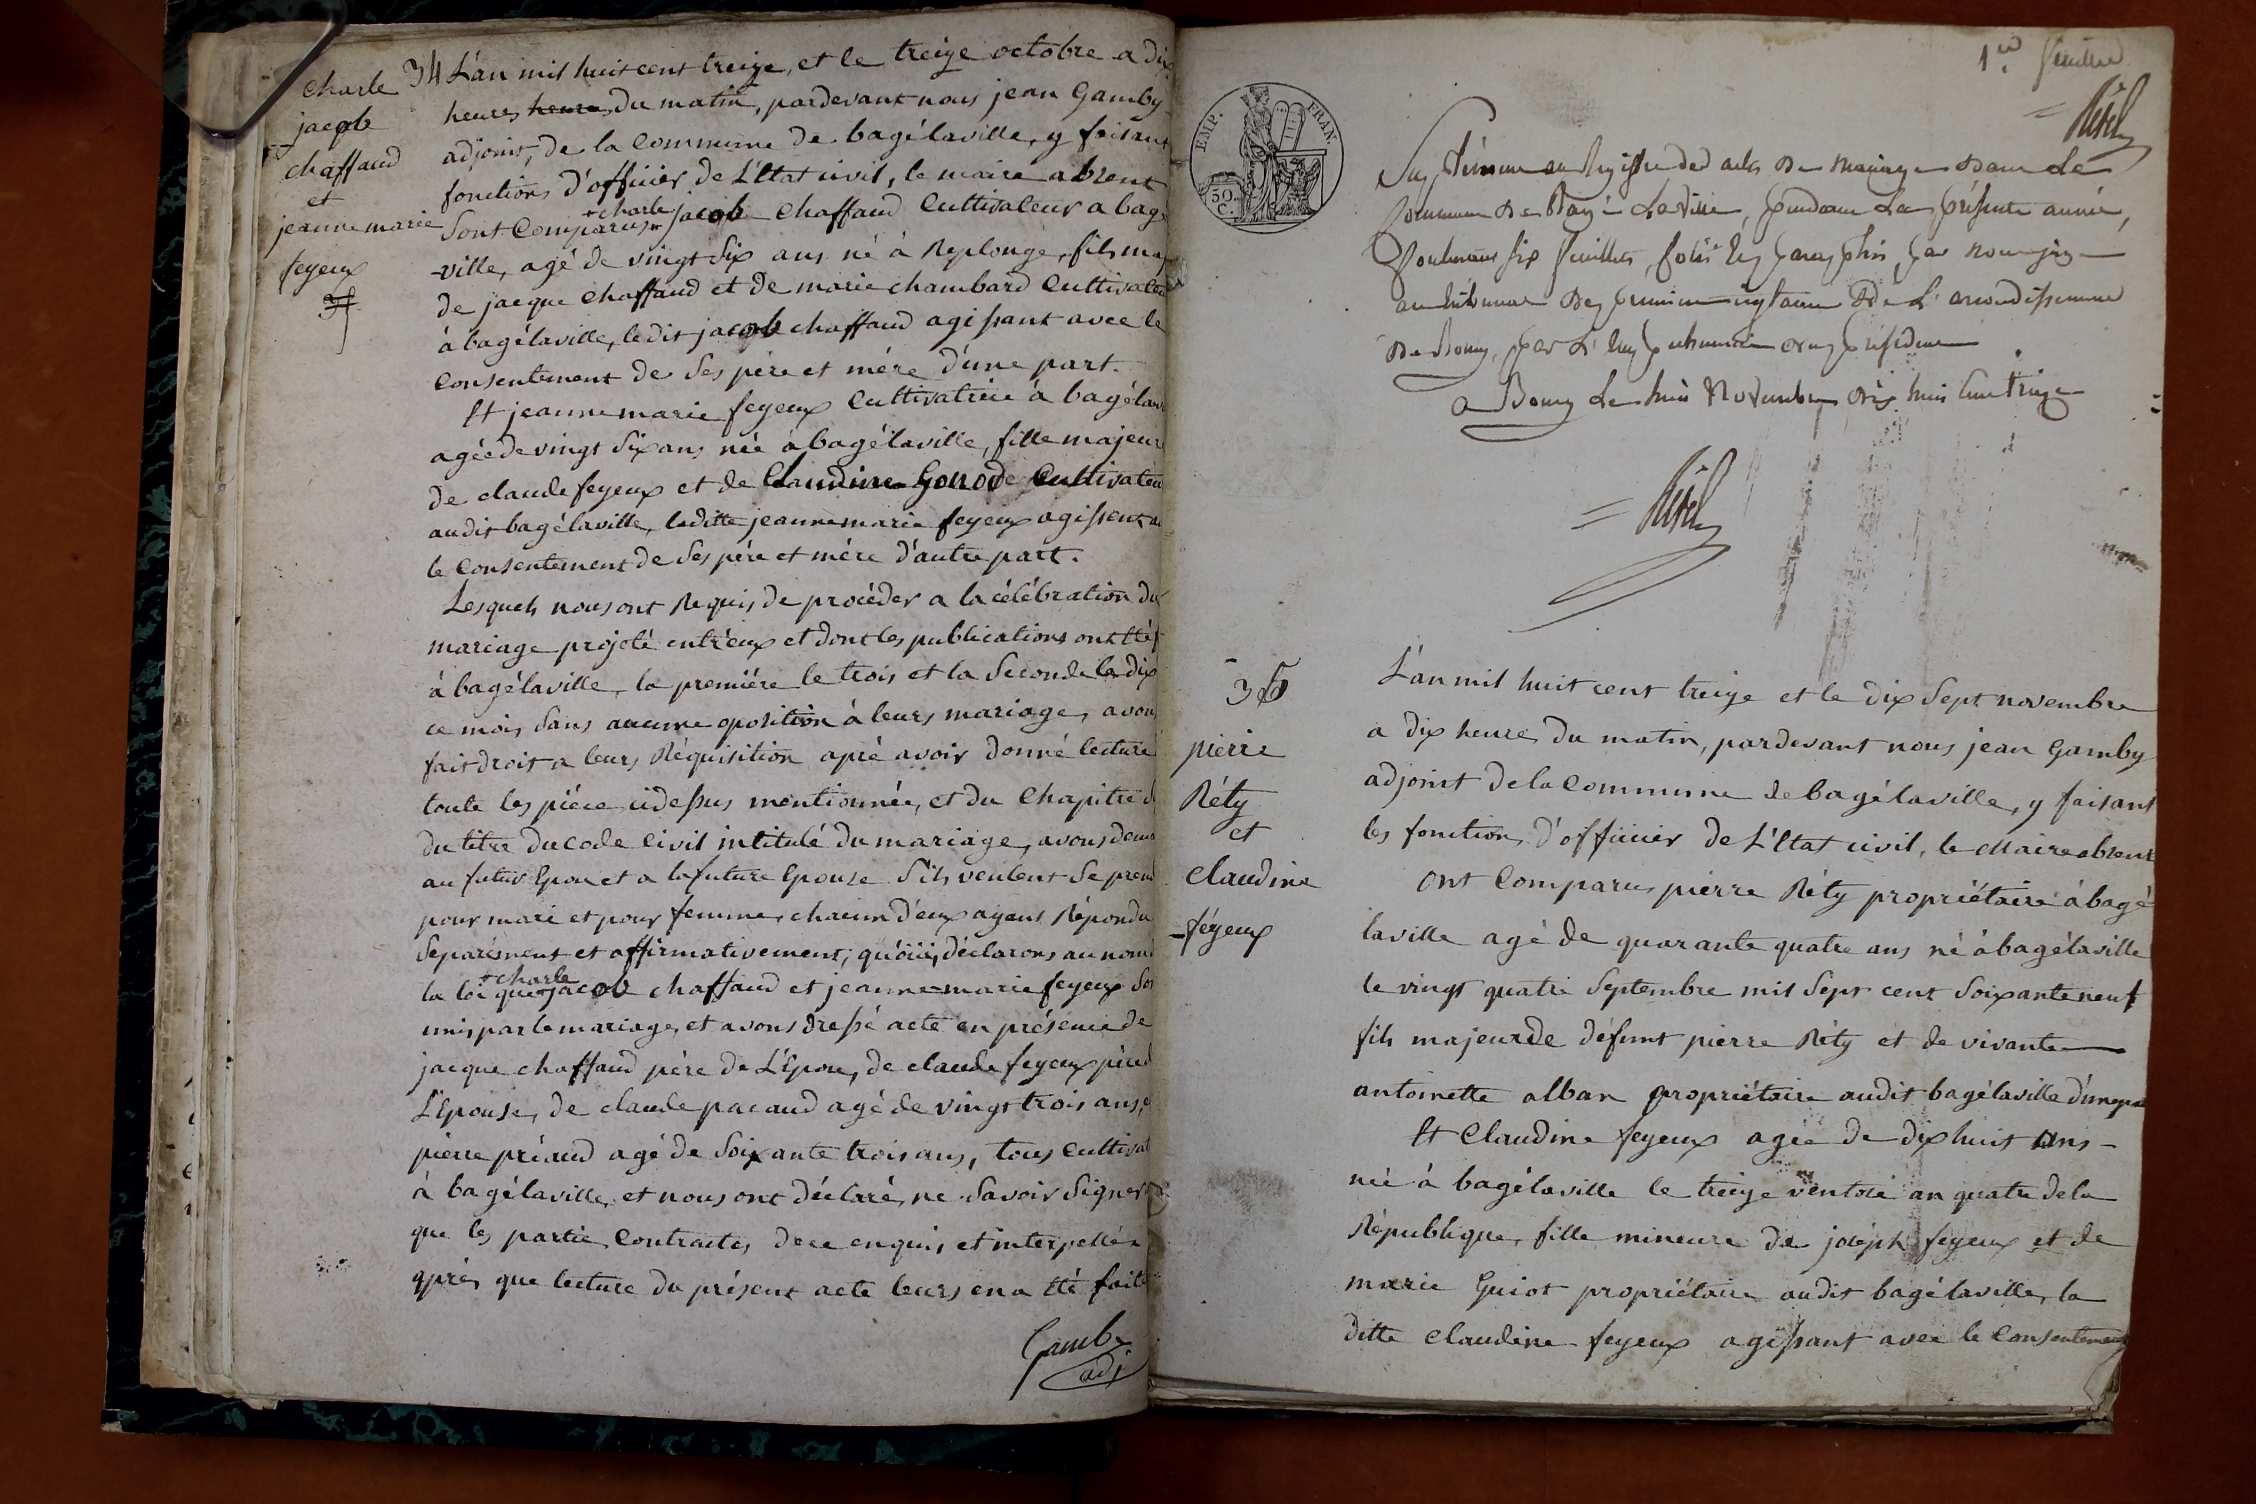 charle
jacob
chaffaud
et
jeanne marie
feyeux
34 L'an mil huit cent treize, et le treize octobre a dix
heures heure du matin, pardevant nous jean Gamby
adjoint, de la Commune de bagélaville, y faisant
fonctions d'officier de L'Etat civil, le maire absent
Sont Comparus + charle jacob Chaffaud Cultivateur a bagé
-ville, agé de vingt Six ans né à Replonge, fils maj
de jacque Chaffaud et de marie chambard Cultivateu
à bagélaville, le dit jacob chaffaud agissant avec le
Consentement de Ses pére et mére d'une part.
Et jeanne marie feyeux Cultivatrice à bagélav
agée de vingt Six ans née à bagélaville, fille majeure
de claude feyeux et de Claudine Gonod Cultivateu
audit bagélaville, laditte jeanne marie feyeux agissent a
le Consentement de Ses pére et mére d'autre part.
Lesquels nous ont Requis de procéder a la célébration du
mariage projeté entr'eux et dont les publications ont été f
à bagélaville, la premiére le trois et la Seconde le dix
ce mois, Sans aucune oposition à leurs mariage, avons
fait droit a leurs Réquisition apré avoir donné lecture
toute les piéce cidessus mentionnée, et du Chapitre d
du titre du code Civil intitulé du mariage, avons dema
au futur Epoux et a la future Epouse S'ils veulent Se prend
pour mari et pour femme, chacun d'eux ayent Répondu
Séparément et affirmativement, déclarons au nom
la loi que + charle jacob chaffaud et jeanne-marie feyeux So
unis par le mariage, et avons dressé acte en présence de
jacque chaffaud pére de L'Epoux, de claude feyeux pére d
L'Epouse, de claude pacaud agé de vingt trois ans,
pierre préaud agé de Soixante trois ans, tous Cultivat
à bagélaville, et nous ont déclaré, ne Savoir Signer
que les partie Contractes, de ce enquis et interpellé
aprés que lecture du présent acte leurs en a été faite
Gamby
adj
1er feuillet
EMP. FRAN.
50.
C.
Supplément au Registre des actes De Mariage Dans La
Commune De Bagé La Ville, pendant La présente année,
Contenant Six feuillets, Cotés et paraphés par nous juge
au tribunal De première instance De L'arrondissement
De Bourg, par L'empechement du président
a Bourg Le huit Novembre dix huit Cent treize
35
pierre
Réty
et
Claudine
féyeux
L'an mil huit cent treize et le dix Sept novembre
a dix heure du matin, pardevant nous jean Gamby
adjoint de la Commune de bagélaville, y faisant
les fonction d'officier de L'Etat civil, le Maire absent
Ont Comparu pierre Réty propriétaire à bagé
laville agé de quarante quatre ans né à bagélaville
le vingt quatre Septembre mil Sept cent Soixante neuf
fils majeur de défunt pierre Réty et de vivante
antoinette alban propriétaire audit bagélaville d'une par
Et Claudine feyeux agée de dix huit ans -
née à bagélaville le treize ventose an quatre de la
République, fille mineure de joséph feyeux et de
marie Guiot propriétaire audit bagélaville, la
ditte Claudine feyeux agissant avec le Consentement